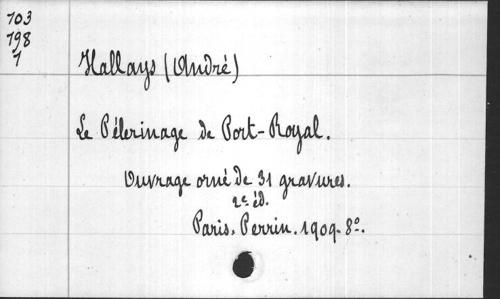 703
798
1
Hallays (André)
Le Pélerinage de Port-Royal.
Ouvrage orné de 31 gravures.
2e éd.
Paris, Perrin. 1909. 8º.